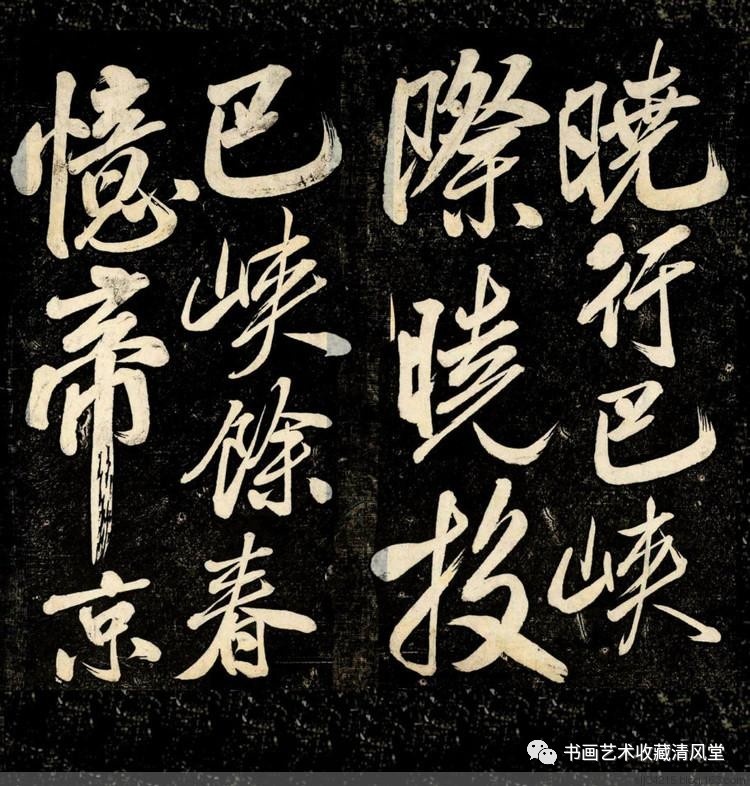 曉行巴峽
際曉投
巴峽餘春
憶帝京
书画艺术收藏清风堂